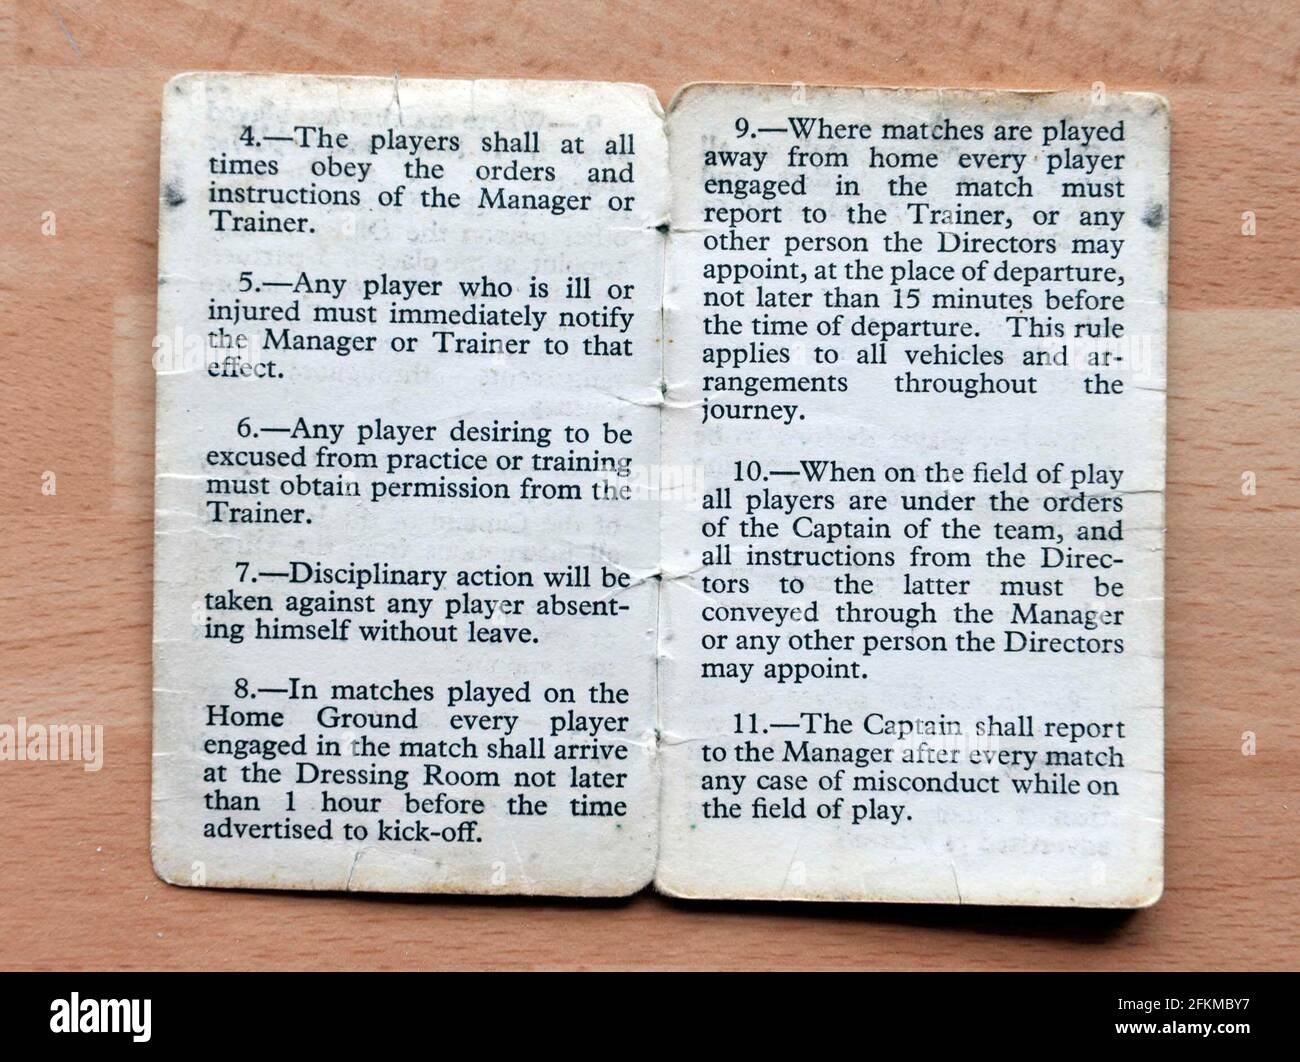 4.—The players shall at all
times obey the orders and
instructions of the Manager or
Trainer.
5.—Any player who is ill or
injured must immediately notify
the Manager or Trainer to that
effect.
6.—Any player desiring to be
excused from practice or training
must obtain permission from the
Trainer.
7.—Disciplinary action will be
taken against any player absent-
ing himself without leave.
8.—In matches played on the
Home Ground every player
engaged in the match shall arrive
at the Dressing Room not later
than 1 hour before the time
advertised to kick-off.
9.—Where matches are played
away from home every player
engaged in the match must
report to the Trainer, or any
other person the Directors may
appoint, at the place of departure,
not later than 15 minutes before
the time of departure. This rule
applies to all vehicles and ar-
rangements throughout the
journey.
10.—When on the field of play
all players are under the orders
of the Captain of the team, and
all instructions from the Direc-
tors to the latter must be
conveyed through the Manager
or any other person the Directors
may appoint.
11.—The Captain shall report
to the Manager after every match
any case of misconduct while on
the field of play.
alamy
alamy
Image ID: 2FKMBY7
www.alamy.com